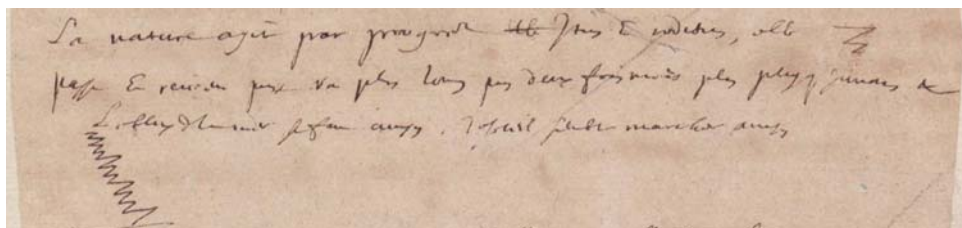 La nature agit par progrez Itus & reditus, elle
passe & revient puis va plus loing puis deux fois moins puis plus q jamais &c
Le flux de la mer se fait ainsy, le soleil semble marcher ainsy